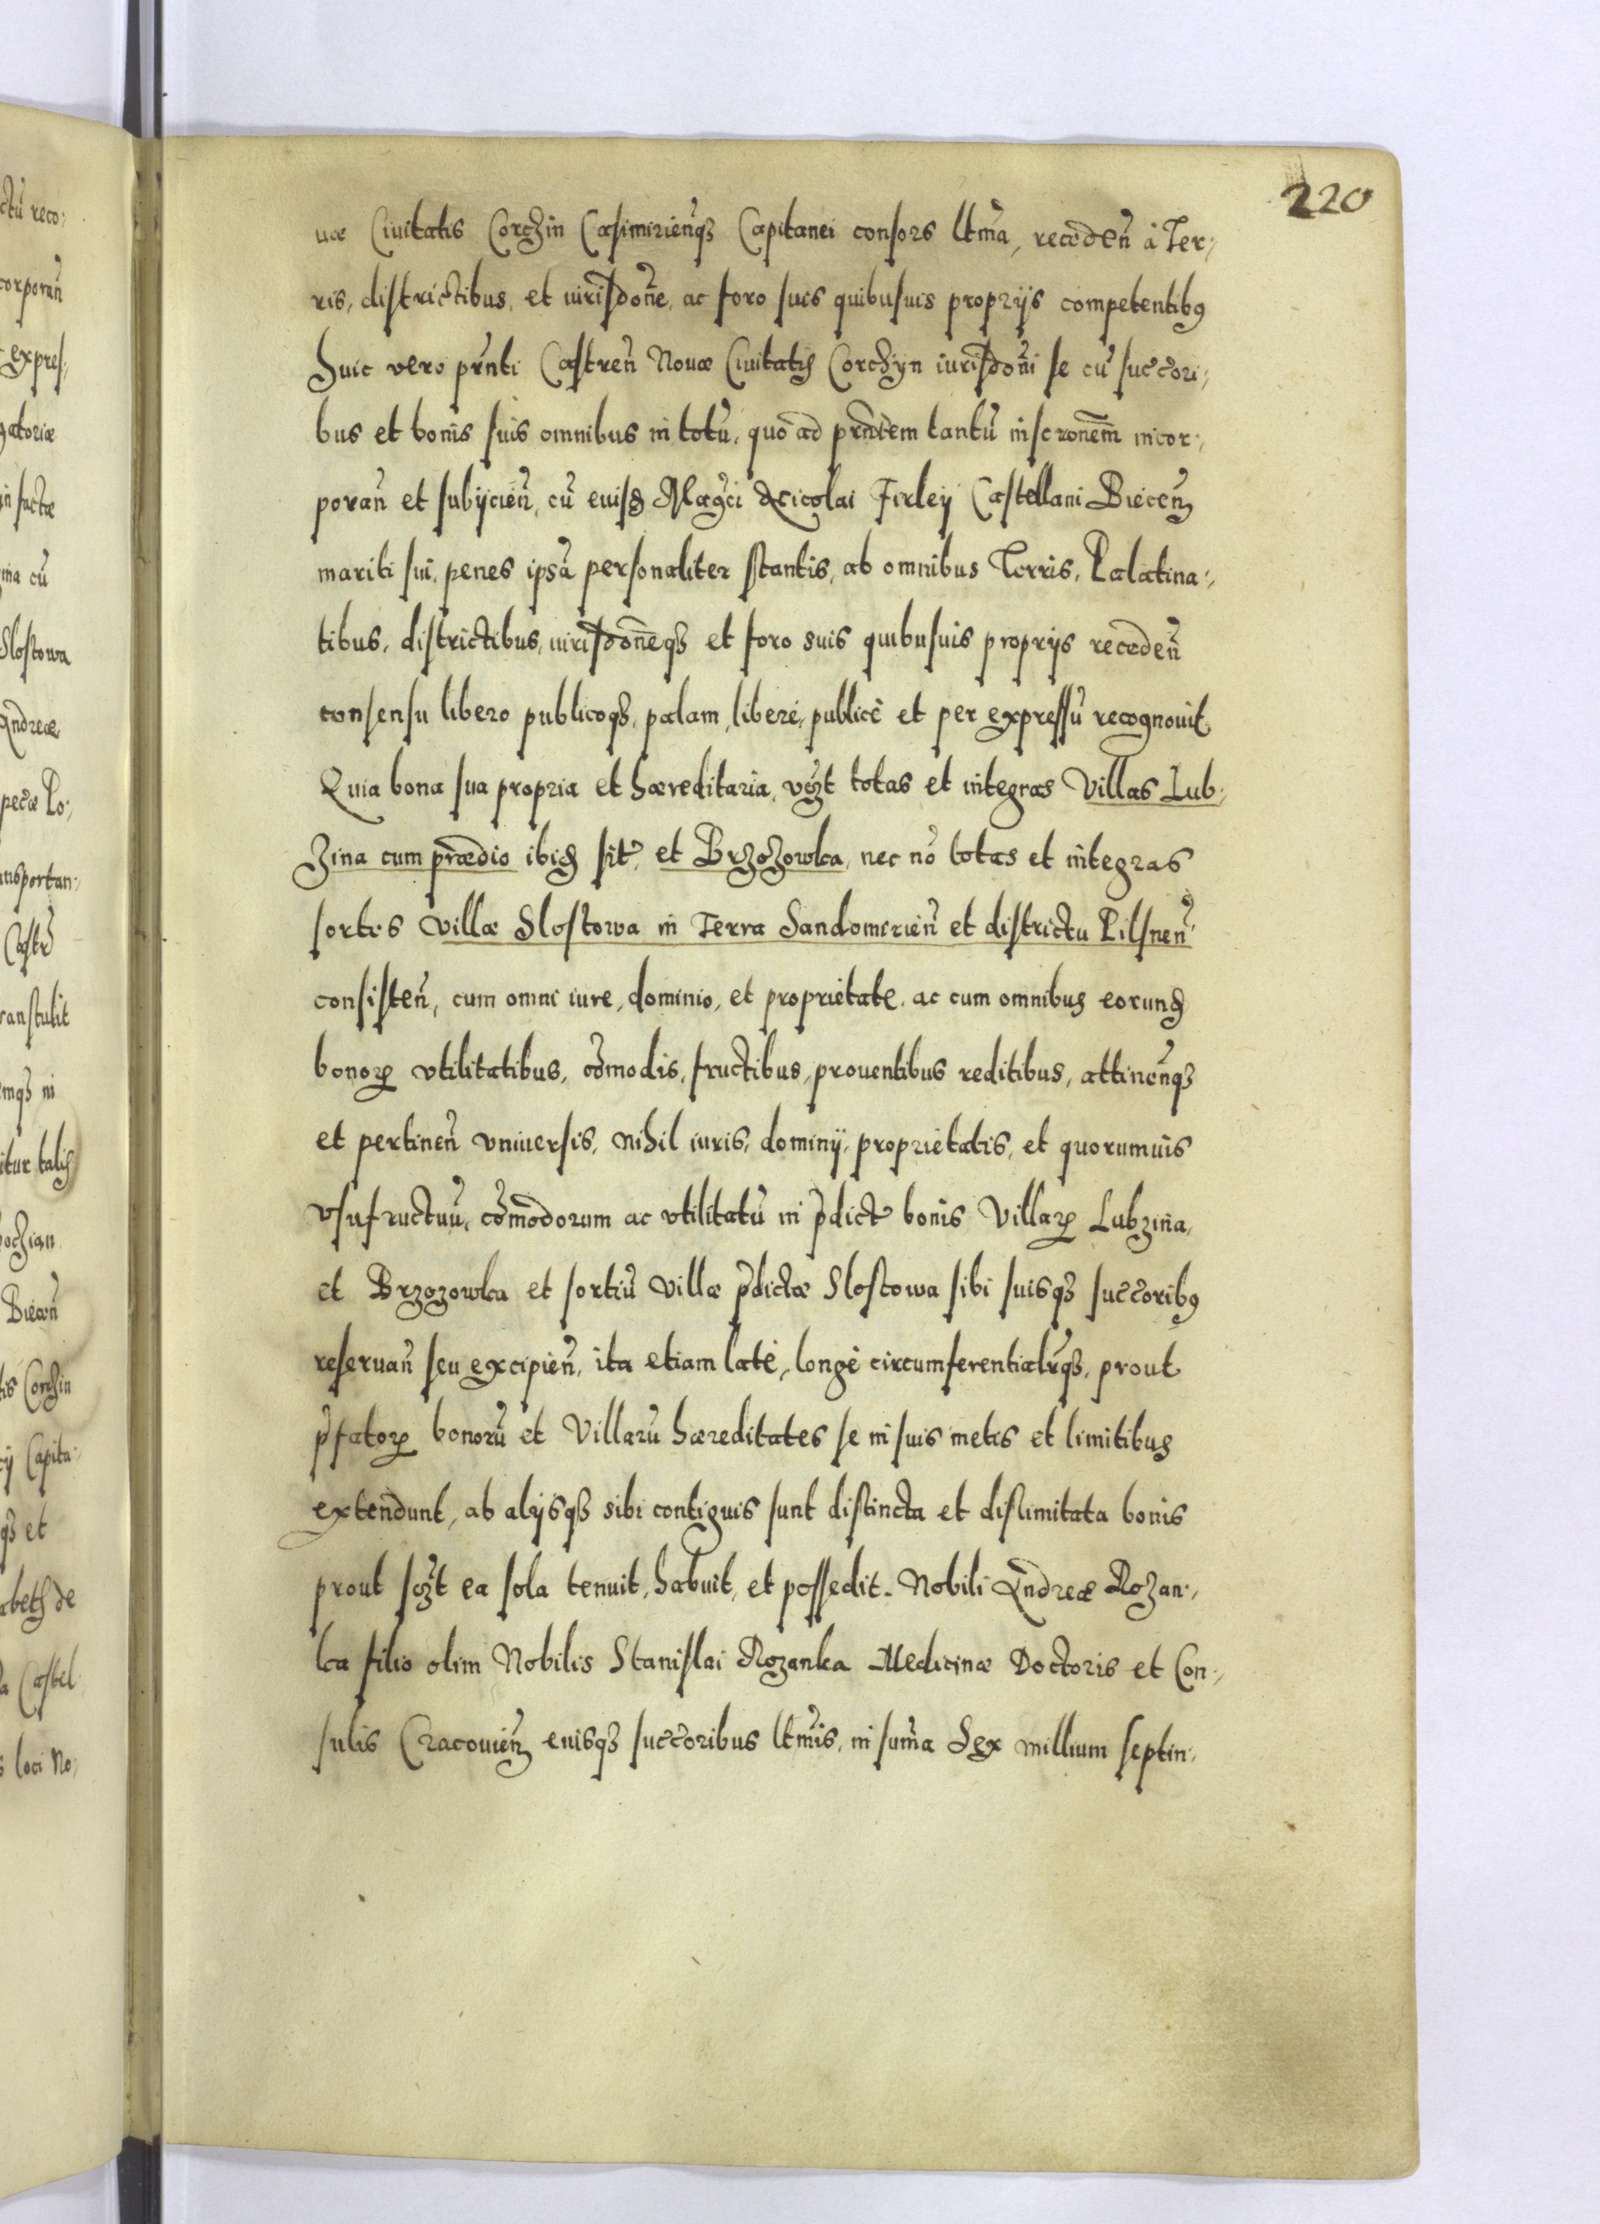 220
uæ Ciuitatis Corczin Casimirien̄q3 Capitanei consors ltm̄a, receden̄ à Ter:
ris, districtibus, et iurisdon̄e, ac foro suis quibusuis proprijs competentibꝰ
huic vero pr̄nti Castren̄ Nouæ Ciuitatis Corczyn iurisdon̄i se cū succ̄ori:
bus et bonis suis omnibus in totū, quo ad pr̄ntem tantū inscr̄onem incor:
poran̄ et subijcien̄, cū euisd Mag̃ci Nicolai Firleÿ Castellani Biecen̄
mariti sui, penes ipsā personaliter stantis, ab omnibus Terris, Palatina:
tibus, districtibus, iurisdon̄eq3 et foro suis quibusuis proprijs receden̄
consensu libero publicoq3, palam, liberè, publicè et per expressū recognouit
Quia bona sua propria et hæreditaria, vz̃t totas et integras Villas Lub:
zina cum prædio ibid̃ sit̃, et Brzozowka, nec nō totas et integras
sortes villæ Slostowa in Terra Sandomirien̄ et districtu Pilsnen̄
consisten̄, cum omni iure, dominio, et proprietate, ac cum omnibus eorund̃
bonoꝝ vtilitatibus, cōmodis, fructibus, prouentibus reditibus, attinen̄q3
et pertinen̄ vniuersis, nihil iuris, dominij, proprietatis, et quorumuis
vsufructuū, cōmodorum ac vtilitatū in p̄dict̃ bonis Villaꝝ Lubzina,
et Brzozowka et sortiū villæ p̄dictæ Slostowa sibi suisq3 succ̄oribꝰ
reseruan̄ seu excipien̄, ita etiam latè, longè circumferentialr̃q3, prout
p̄fatoꝝ bonorū et Villarū hæreditates se in suis metis et limitibus
extendunt, ab alijsq3 sibi contiguis sunt distincta et dislimitata bonis
prout soz̃t ea sola tenuit, habuit, et possedit. Nobili Andreæ Rozan:
ka filio olim Nobilis Stanislai Rozanka Medicinæ Doctoris et Con:
sulis Cracouien̄ euisq3 succ̄oribus ltm̄is, in sum̄a Sex millium septin: